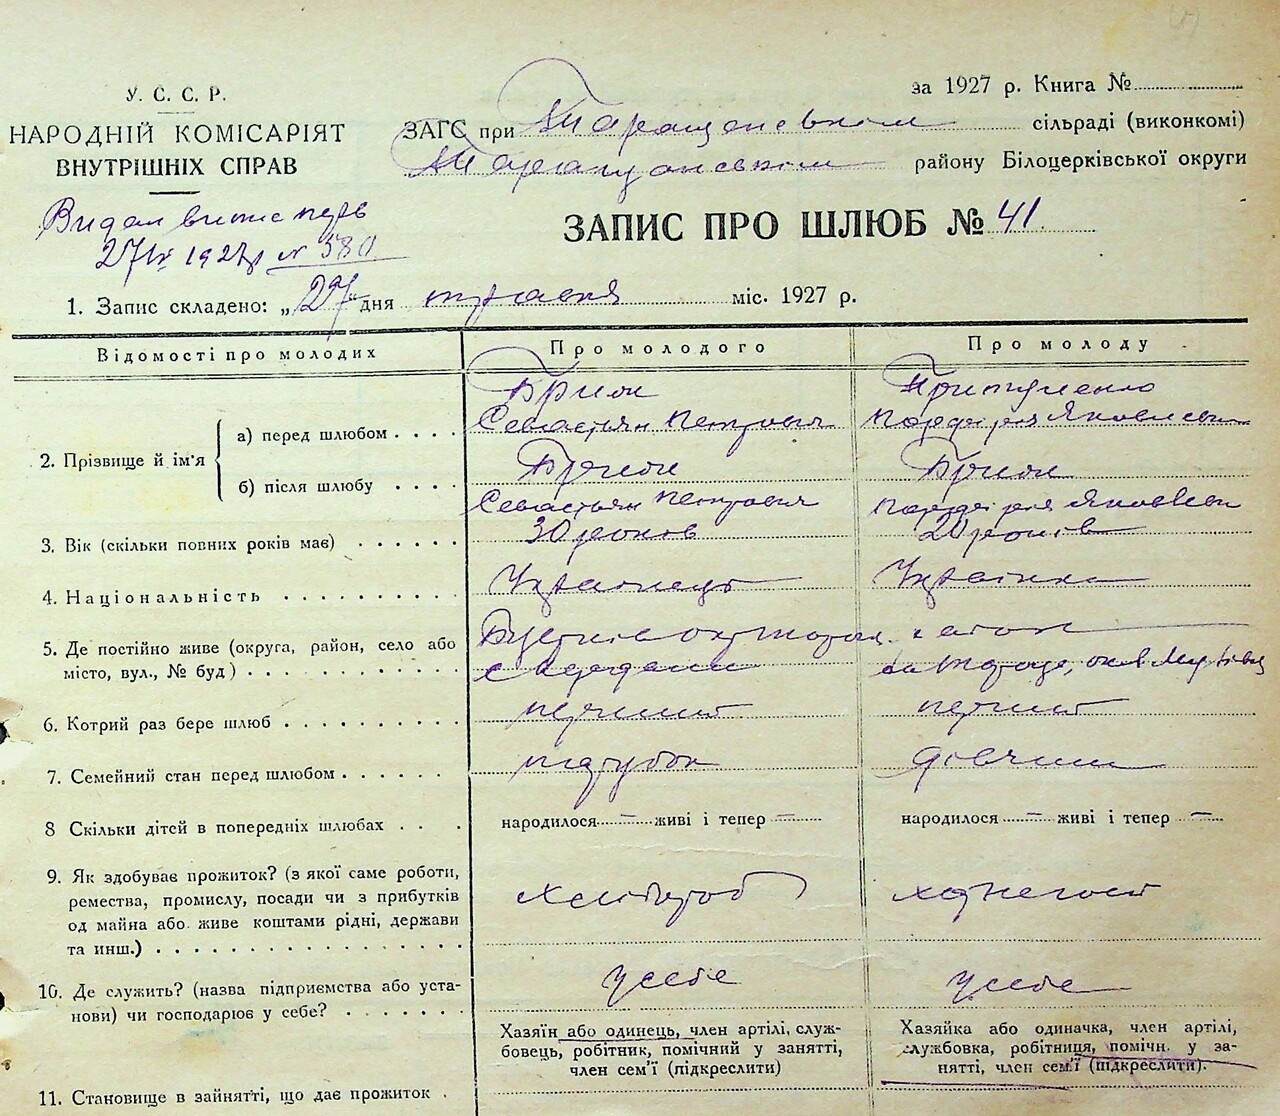 У. С. С. Р.
НАРОДНІЙ КОМІСАРІЯТ
ВНУТРІШНІХ СПРАВ
за 1927 р. Книга №
ЗАГС при Таращансвком сільраді (виконкомі)
Таращанськом району Білоцерківської округи
Видан
27 1927 р № 380
ЗАПИС ПРО ШЛЮБ № 41
1. Запис складено: „27" дня травня міс. 1927 р.
Відомості про молодих
Про молодого
Про молоду
2. Прізвище й ім'я
а) перед шлюбом
Севастьян Петрович
Яковлевна
б) після шлюбу
Севастьян Петрович
Яковлевна
3. Вік (скільки повних років має)
30 роков
20 років
4. Національність
Українець
Українка
5. Де постійно живе (округа, район, село або
місто, вул., № буд)
6. Котрий раз бере шлюб
перший
перший
7. Семейний стан перед шлюбом
парубок
дівчина
8 Скільки дітей в попередніх шлюбах
народилося – живі і тепер –
народилося – живі і тепер –
9. Як здобуває прожиток? (з якої саме роботи,
ремества, промислу, посади чи з прибутків
од майна або живе коштами рідні, держави
та инш.)
хлібороб
10. Де служить? (назва підприємства або уста-
нови) чи господарює у себе?
у себе
у себе
11. Становище в зайнятті, що дає прожиток
Хазяїн або одинець, член артілі, служ-
бовець, робітник, помічний у занятті,
член сем'ї (підкреслити)
Хазяйка або одиначка, член артілі,
службовка, робітниця, помічн. у за-
нятті, член сем'ї (підкреслити).